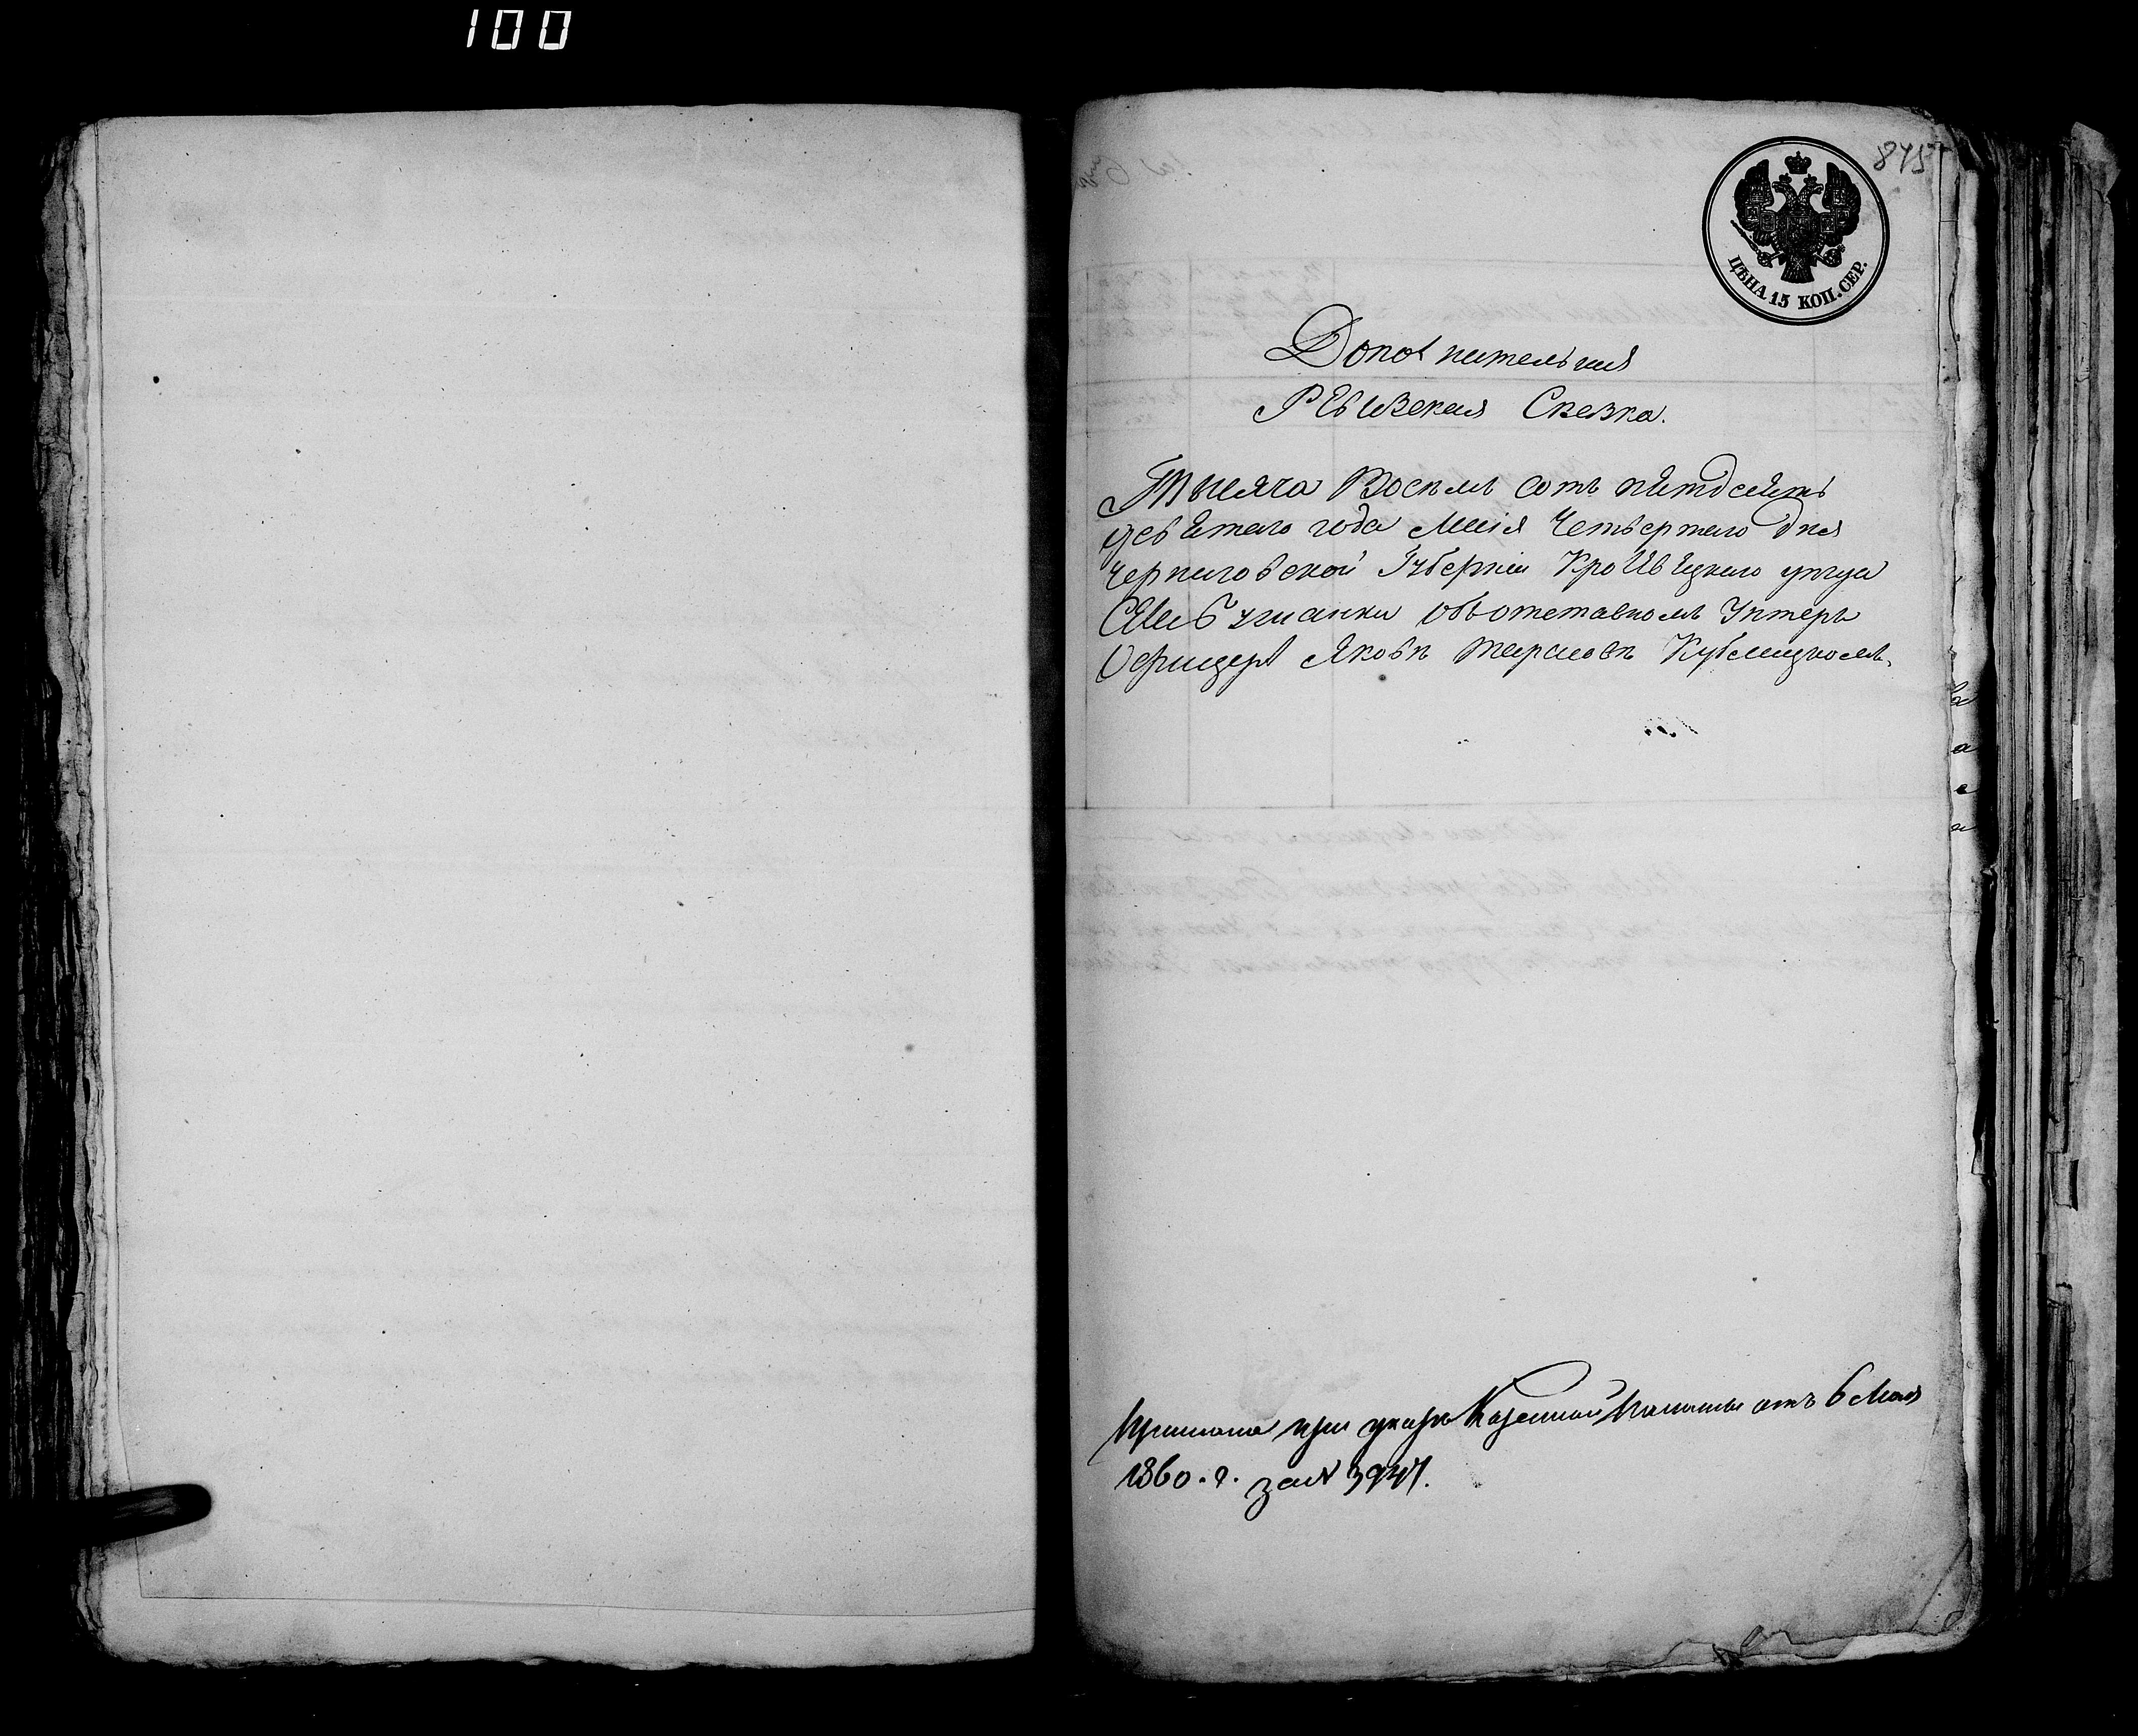 100
875
ЦѢНА 15 КОП. СЕР.
Дополнительния
Ревизская Сказка.
Тысяча Восемь сотъ пятдесятъ
девятаго года Маія Четвертаго дня
Черниговской Губерніи Кролевецкаго уезда
объ отставномъ Унтеръ
Офицере Якове Тарасове
Прислана при указе Казенной Палаты отъ 6 Мая
1860. г. за №